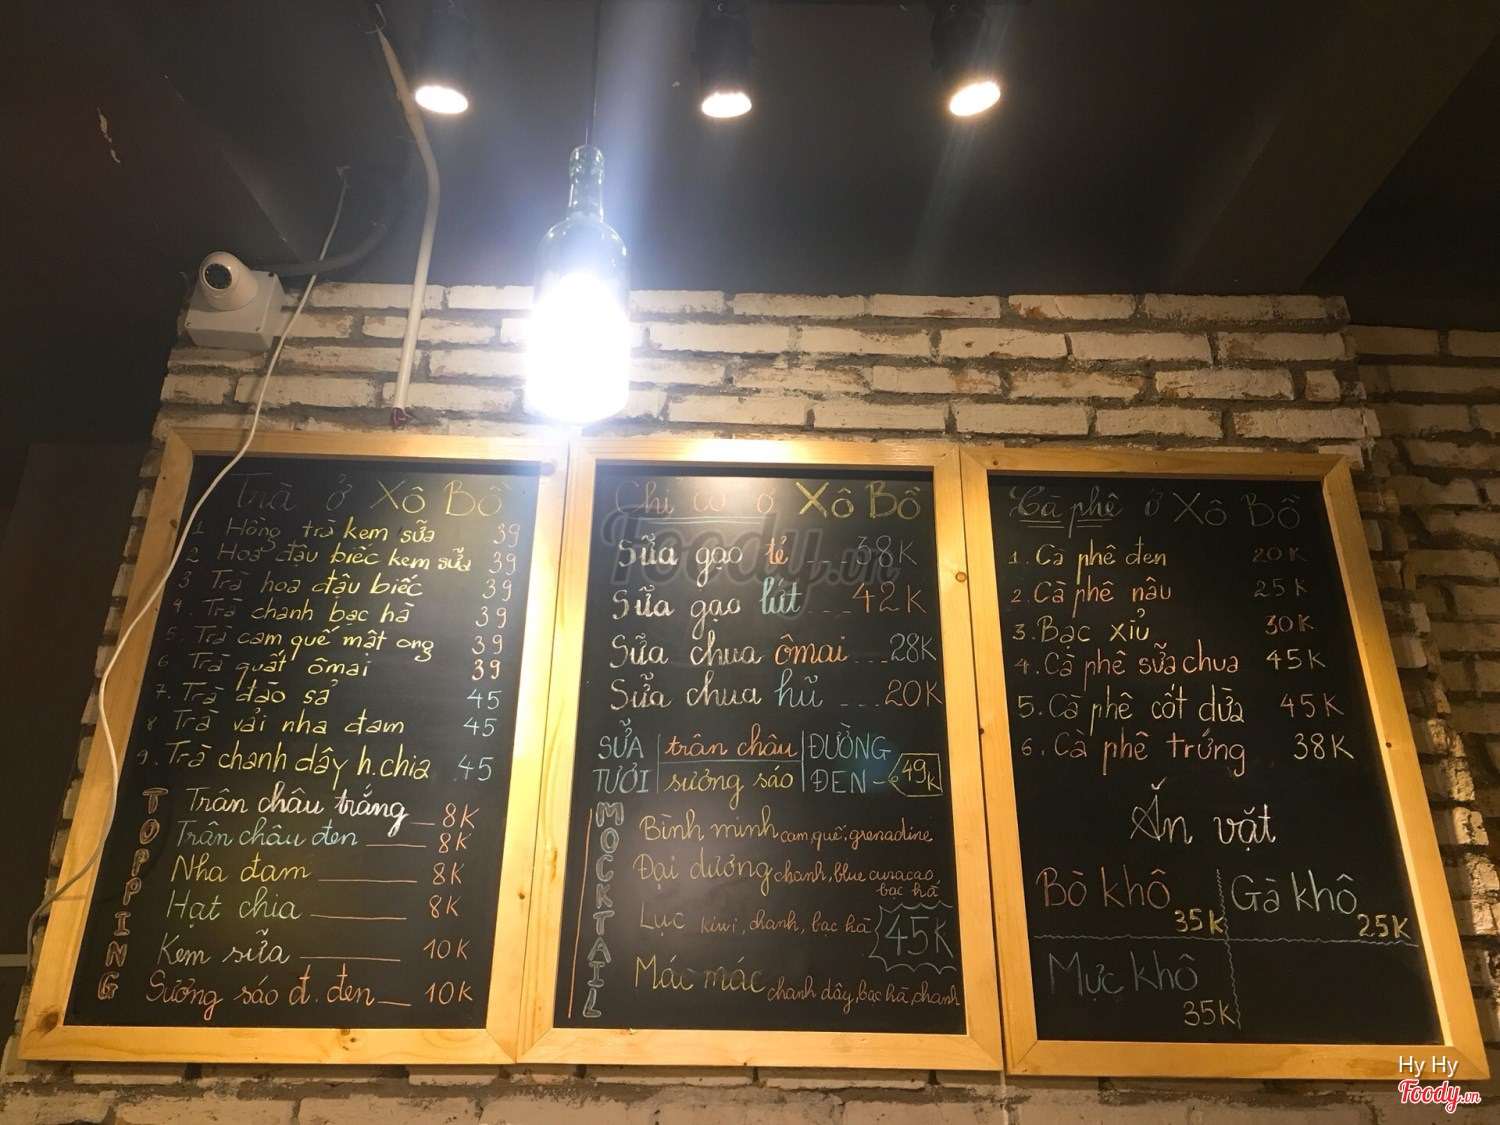 Trà ở Xô Bồ
1 Hồng trà kem sữa 39
2 Hoa đậu biếc kem sữa 39
3 Trà hoa đậu biếc 39
4. Trà chanh bạc hà 39
5. Trà cam quế mật ong 39
6 Trà quất ômai 39
7. Trà đào sả 45
8 Trà vải nha đam 45
9. Trà chanh dây h.chia 45
TOPPING
Trân châu trắng 8K
Trân châu đen 8K
Nha đam 8K
Hạt chia 8K
Kem sữa 10K
Sương sáo đ. đen 10K
Chỉ có ở Xô Bồ
Sữa gạo tẻ ... 38K
Sữa gạo lứt ... 42K
Sữa chua ômai ... 28K
Sữa chua hũ ... 20K
SỮA TƯƠI
trân châu
sương sáo
ĐƯỜNG ĐEN - 49K
MOCKTAIL
Bình minh cam, quế, grenadine
Đại dương chanh, blue curacao, bạc hà
Lục kiwi, chanh, bạc hà
45K
Mác mác chanh dây, bạc hà, chanh
Cà phê ở Xô Bồ
1. Cà phê đen 20K
2. Cà phê nâu 25K
3. Bạc xỉu 30K
4. Cà phê sữa chua 45K
5. Cà phê cốt dừa 45K
6. Cà phê trứng 38K
Ăn vặt
Bò khô 35K
Gà khô 25K
Mực khô 35K
Foody.vn
Hy Hy
Foody.vn